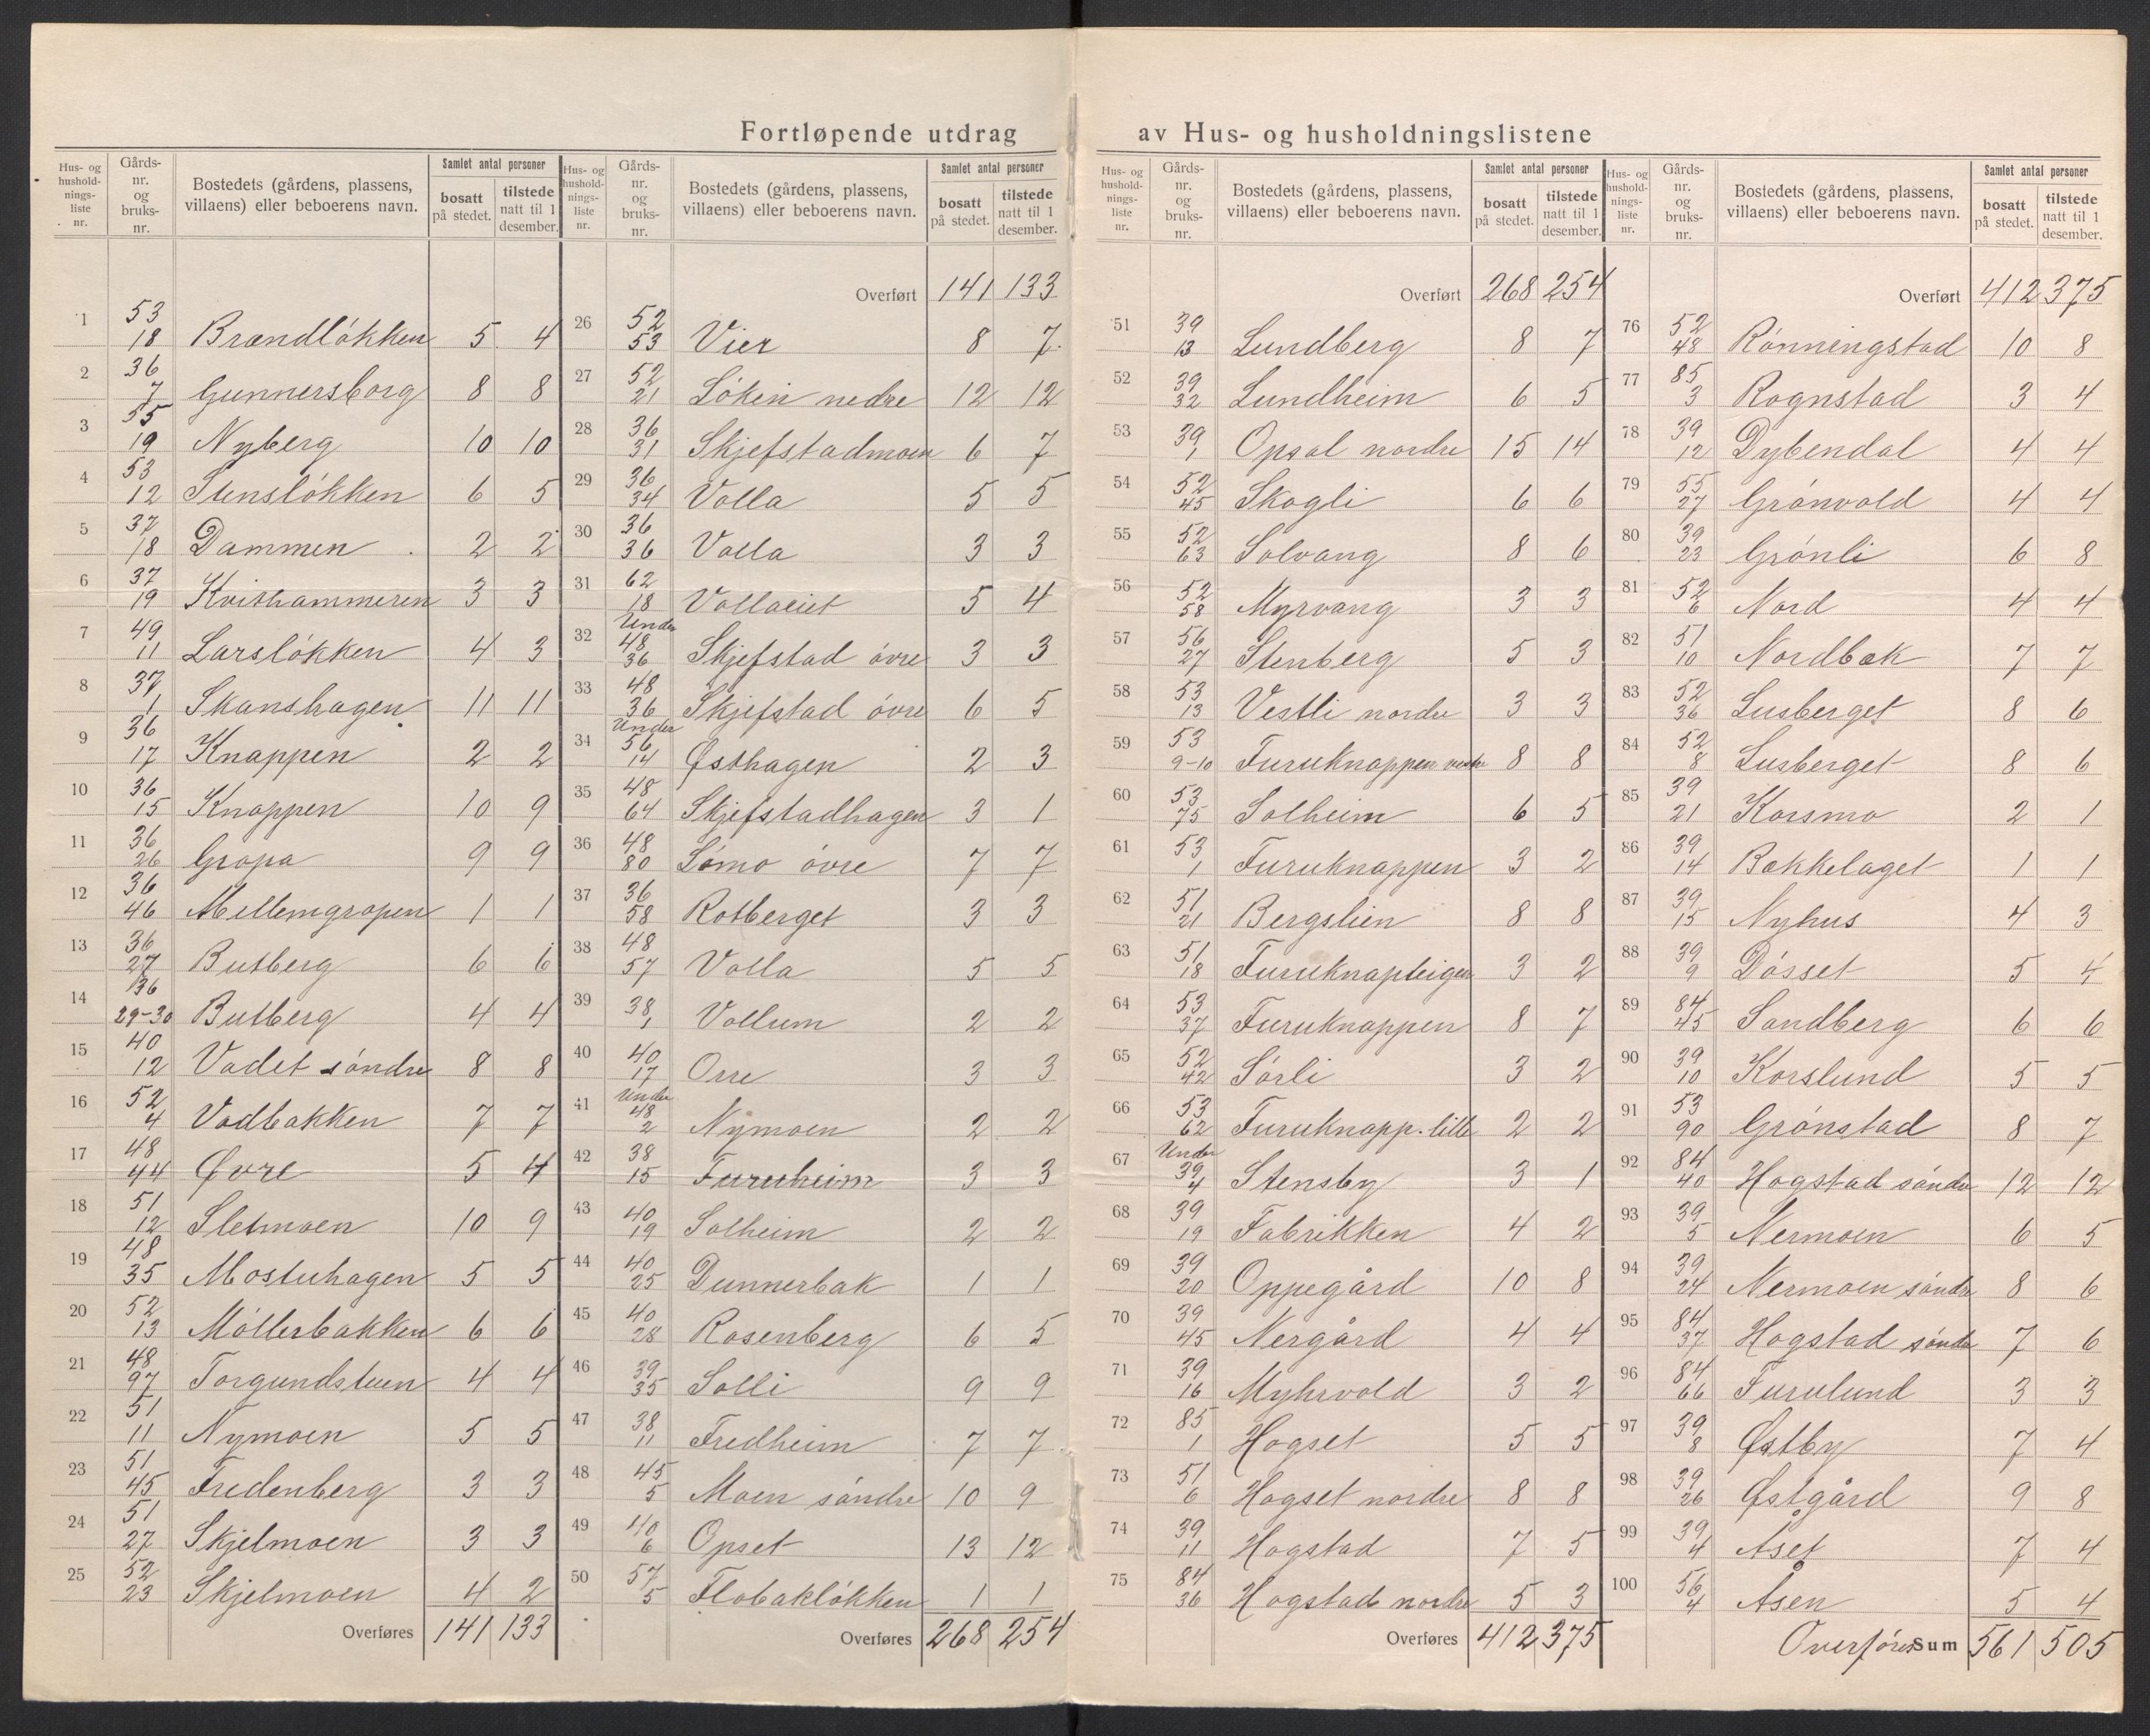 Fortløpende utdrag av Hus- og husholdningslistene
Hus- og husholdnings-liste nr. Gårds-nr. og bruks-nr. Bostedets (gårdens, plassens, villaens) eller beboerens navn. Samlet antal personer bosatt på stedet. tilstede natt til 1 desember.
1 53 18 Brændløkken 5 4
2 36 7 Gunnersborg 8 8
3 55 19 Nyberg 10 10
4 53 12 Stensløkken 6 5
5 37 18 Dammen 2 2
6 37 19 Kvisthammeren 3 3
7 49 11 Larsløkken 4 3
8 37 1 Skanshagen 11 11
9 36 17 Knappen 2 2
10 36 15 Knappen 10 9
11 36 26 Gropa 9 9
12 36 46 Mellemgropen 1 1
13 36 27 Butberg 6 6
14 36 29-30 Butberg 4 4
15 40 12 Vadet søndre 8 8
16 52 4 Vadbakken 7 7
17 48 44 Øvre 5 4
18 51 12 Sletmoen 10 9
19 48 35 Mostuhagen 5 5
20 52 13 Møllerbakken 6 6
21 48 97 Torgundstuen 4 4
22 51 11 Nymoen 5 5
23 51 45 Fredenberg 3 3
24 51 27 Skjelmoen 3 3
25 52 23 Skjelmoen 4 2
Overføres 141 133
Hus- og husholdnings-liste nr. Gårds-nr. og bruks-nr. Bostedets (gårdens, plassens, villaens) eller beboerens navn. Samlet antal personer bosatt på stedet. tilstede natt til 1 desember.
Overført 141 133
26 52 53 Vier 8 7
27 52 21 Løken nedre 12 12
28 36 31 Skjefstadmoen 6 7
29 36 34 Volla 5 5
30 36 36 Volla 3 3
31 62 18 Vollaeiet 5 4
32 Under 48 36 Skjefstad øvre 3 3
33 48 36 Skjefstad øvre 6 5
34 Under 56 14 Østhagen 2 3
35 48 64 Skjefstadhagen 3 1
36 48 80 Lømo øvre 7 7
37 36 58 Rotberget 3 3
38 48 57 Volla 5 5
39 38 1 Vollum 2 2
40 40 17 Orre 3 3
41 Under 48 2 Nymoen 2 2
42 38 15 Furuheim 3 3
43 40 19 Solheim 2 2
44 40 25 Dunnerbak 1 1
45 40 28 Rosenberg 6 5
46 39 35 Solli 9 9
47 38 11 Fredheim 7 7
48 45 5 Moen søndre 10 9
49 40 6 Opset 13 12
50 57 5 Flobakløkken 1 1
Overføres 268 254
Hus- og husholdnings-liste nr. Gårds-nr. og bruks-nr. Bostedets (gårdens, plassens, villaens) eller beboerens navn. Samlet antal personer bosatt på stedet. tilstede natt til 1 desember.
Overført 268 254
51 39 13 Lundberg 8 7
52 39 32 Lundheim 6 5
53 39 1 Opsal nordre 15 14
54 52 45 Skogli 6 6
55 52 63 Solvang 8 6
56 52 58 Myrvang 3 3
57 56 27 Stenberg 5 3
58 53 13 Vestli nordre 3 3
59 53 9-10 Furuknappen vestre 8 8
60 53 75 Solheim 6 5
61 53 1 Furuknappen 3 2
62 51 21 Bergslien 8 8
63 51 18 Furuknapteigen 3 2
64 53 37 Furuknappen 8 7
65 52 42 Sørli 3 2
66 53 62 Furuknapp. lille 2 2
67 Under 39 4 Stensby 3 1
68 39 19 Fabrikken 4 2
69 39 20 Oppegård 10 8
70 39 45 Nergård 4 4
71 39 16 Myhrvold 3 2
72 85 1 Hogset 5 5
73 51 6 Hogset nordre 8 8
74 39 11 Hogstad 7 5
75 84 36 Hogstad nordre 5 3
Overføres 412 375
Hus- og husholdnings-liste nr. Gårds-nr. og bruks-nr. Bostedets (gårdens, plassens, villaens) eller beboerens navn. Samlet antal personer bosatt på stedet. tilstede natt til 1 desember.
Overført 412 375
76 52 48 Rønningstad 10 8
77 85 3 Rognstad 3 4
78 39 12 Dybendal 4 4
79 55 27 Grønvold 4 4
80 39 23 Grønli 6 8
81 52 6 Nord 4 4
82 51 10 Nordbæk 7 7
83 52 36 Lusberget 8 6
84 52 8 Lusberget 8 6
85 39 21 Korsmo 2 1
86 39 14 Bakkelaget 1 1
87 39 15 Nyhus 4 3
88 39 9 Døsset 5 4
89 84 45 Sandberg 6 6
90 39 10 Korslund 5 5
91 53 90 Grønstad 8 7
92 84 40 Hogstad søndre 12 12
93 39 5 Nermoen 6 5
94 39 24 Nermoen søndre 8 6
95 84 37 Hogstad søndre 7 6
96 84 66 Furulund 3 3
97 39 8 Østby 7 4
98 39 26 Østgård 9 8
99 39 4 Åset 7 4
100 56 4 Åsen 5 4
Overføres Sum 561 505